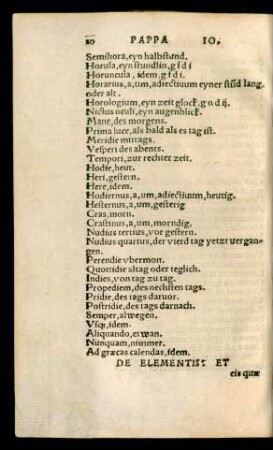 20 PAPPA IO.
Semihora, eyn halbstund.
Horula, eyn stundlin, g f d i
Horuncula, idem, g f d i.
Horarius, a, um, adiectiuum eyner stūd lang.
oder alt.
Horologium, eyn zeit glock. g n d ij.
Nictus oculi, eyn augenblick.
Mane, des morgens.
Prima luce, als bald als es tag ist.
Meridie mittags.
Vesperi des abents.
Tempori, zur rechter zeit.
Hodie, heut.
Heri, gestern.
Here, idem.
Hodiernus, a, um, adiectiuum, heutig.
Hesternus, a, um, gesterig
Cras, morn.
Crastinus, a, um, morndig.
Nudius tertius, vor gestern.
Nudius quartus, der vierd tag yetzt vergan-
gen.
Perendie vbermorn.
Quottidie altag oder teglich.
Indies, von tag zu tag.
Propediem, des nechsten tags.
Pridie, des tags daruor.
Postridie, des tags darnach.
Semper, alwegen.
Vsq;, idem.
Aliquando, etwan.
Nunquam, nimmer.
Ad græcas calendas, idem.
DE ELEMENTIS: ET
eis quæ